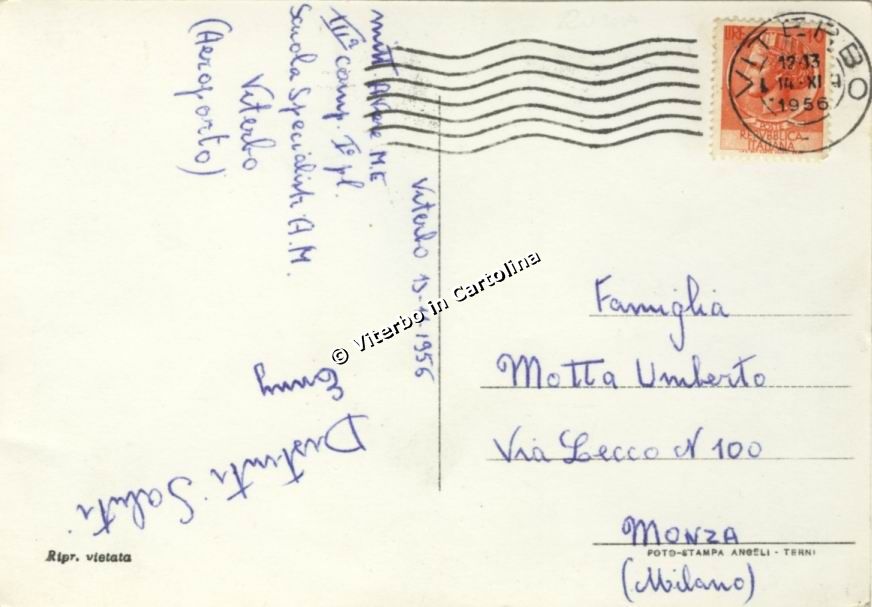 mitt.
M.E
IIIª comp. Iº pl.
Scuola Specialisti A.M.
Viterbo
(Aeroporto)
Viterbo 13-XI-1956
Distinti Saluti
© Viterbo in Cartolina
LIRE
VITERBO
12-13
14·XI
1956
REPVBBLICA
ITALIANA
Famiglia
Motta Umberto
Via Lecco N 100
MONZA
(Milano)
Ripr. vietata
FOTO-STAMPA ANGELI - TERNI